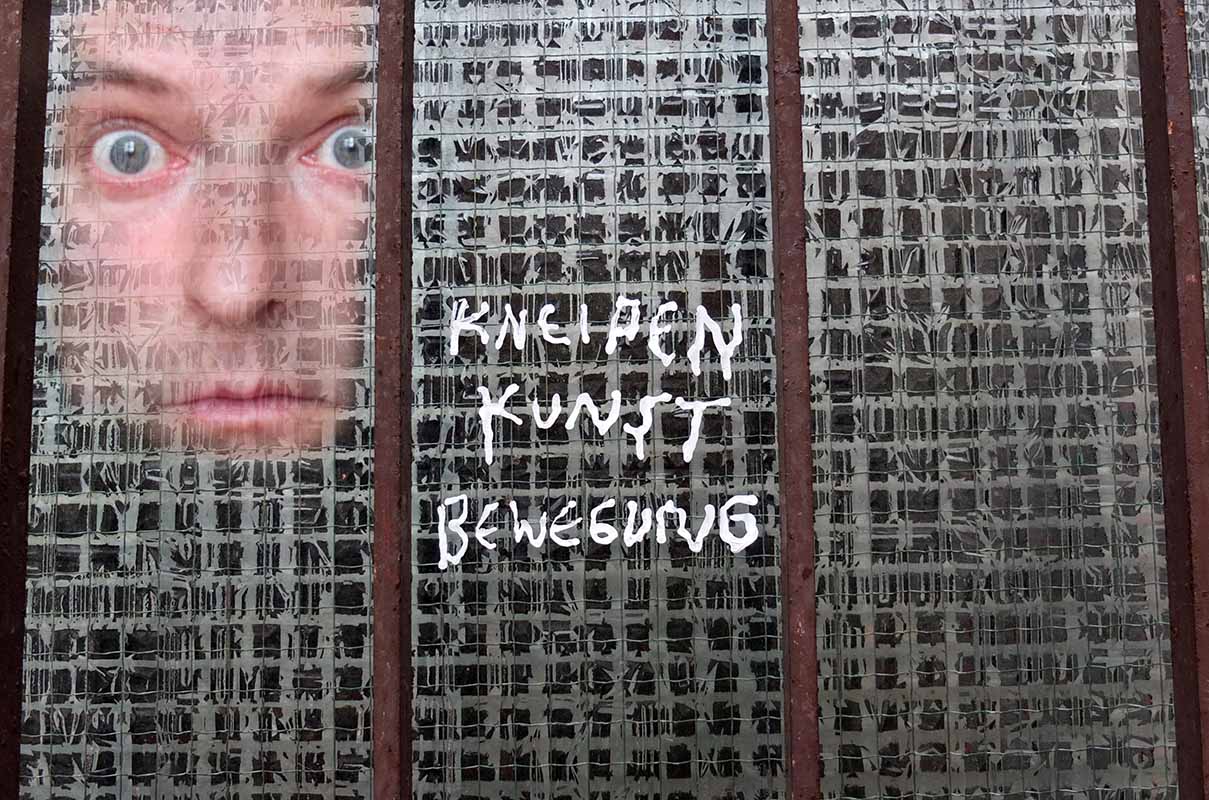 KNEIPEN
KUNST
BEWEGUNG